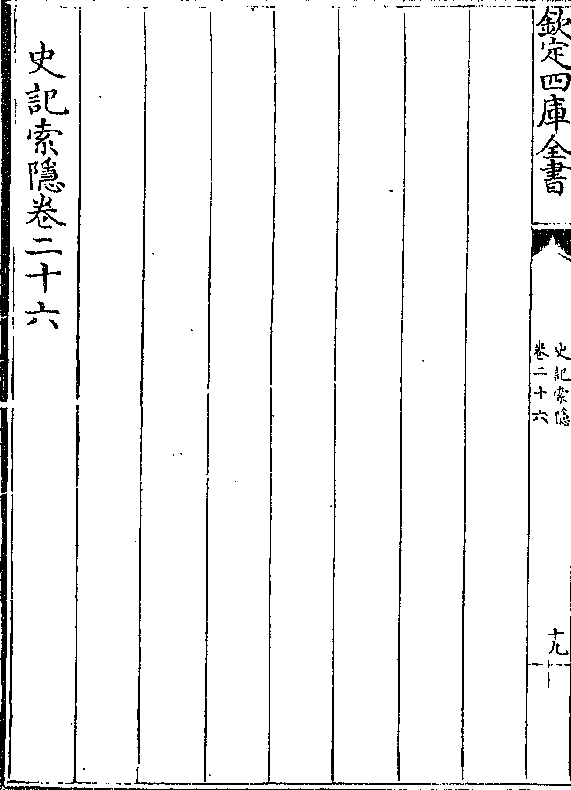 欽定四庫全書
史記索隱
卷二十六
十九
史記索隱卷二十六